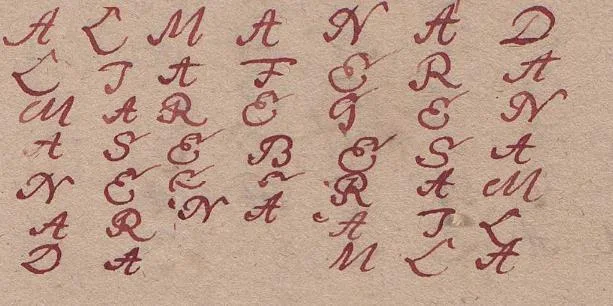 A L M A N A D
L J A F E R A
M A R E G E N
A S E B E S A
N E E E R A M
A R N A A J L
D A M L A